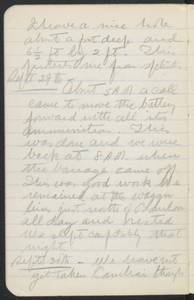 I have a nice hole
about a foot deep and
6½ ft by 2 ft. This
protects me from splinters
Sept 29th.
About 5 AM a call
came to move the battery
forward with all its
ammunition. This
was done and we were
back at 8 AM when
the barrage came off
This was good work. We
remained at the wagon
lines just north of
all day and rested
We slept capitally that
night.
Sept 30th - We haven't
got taken Cambrai though